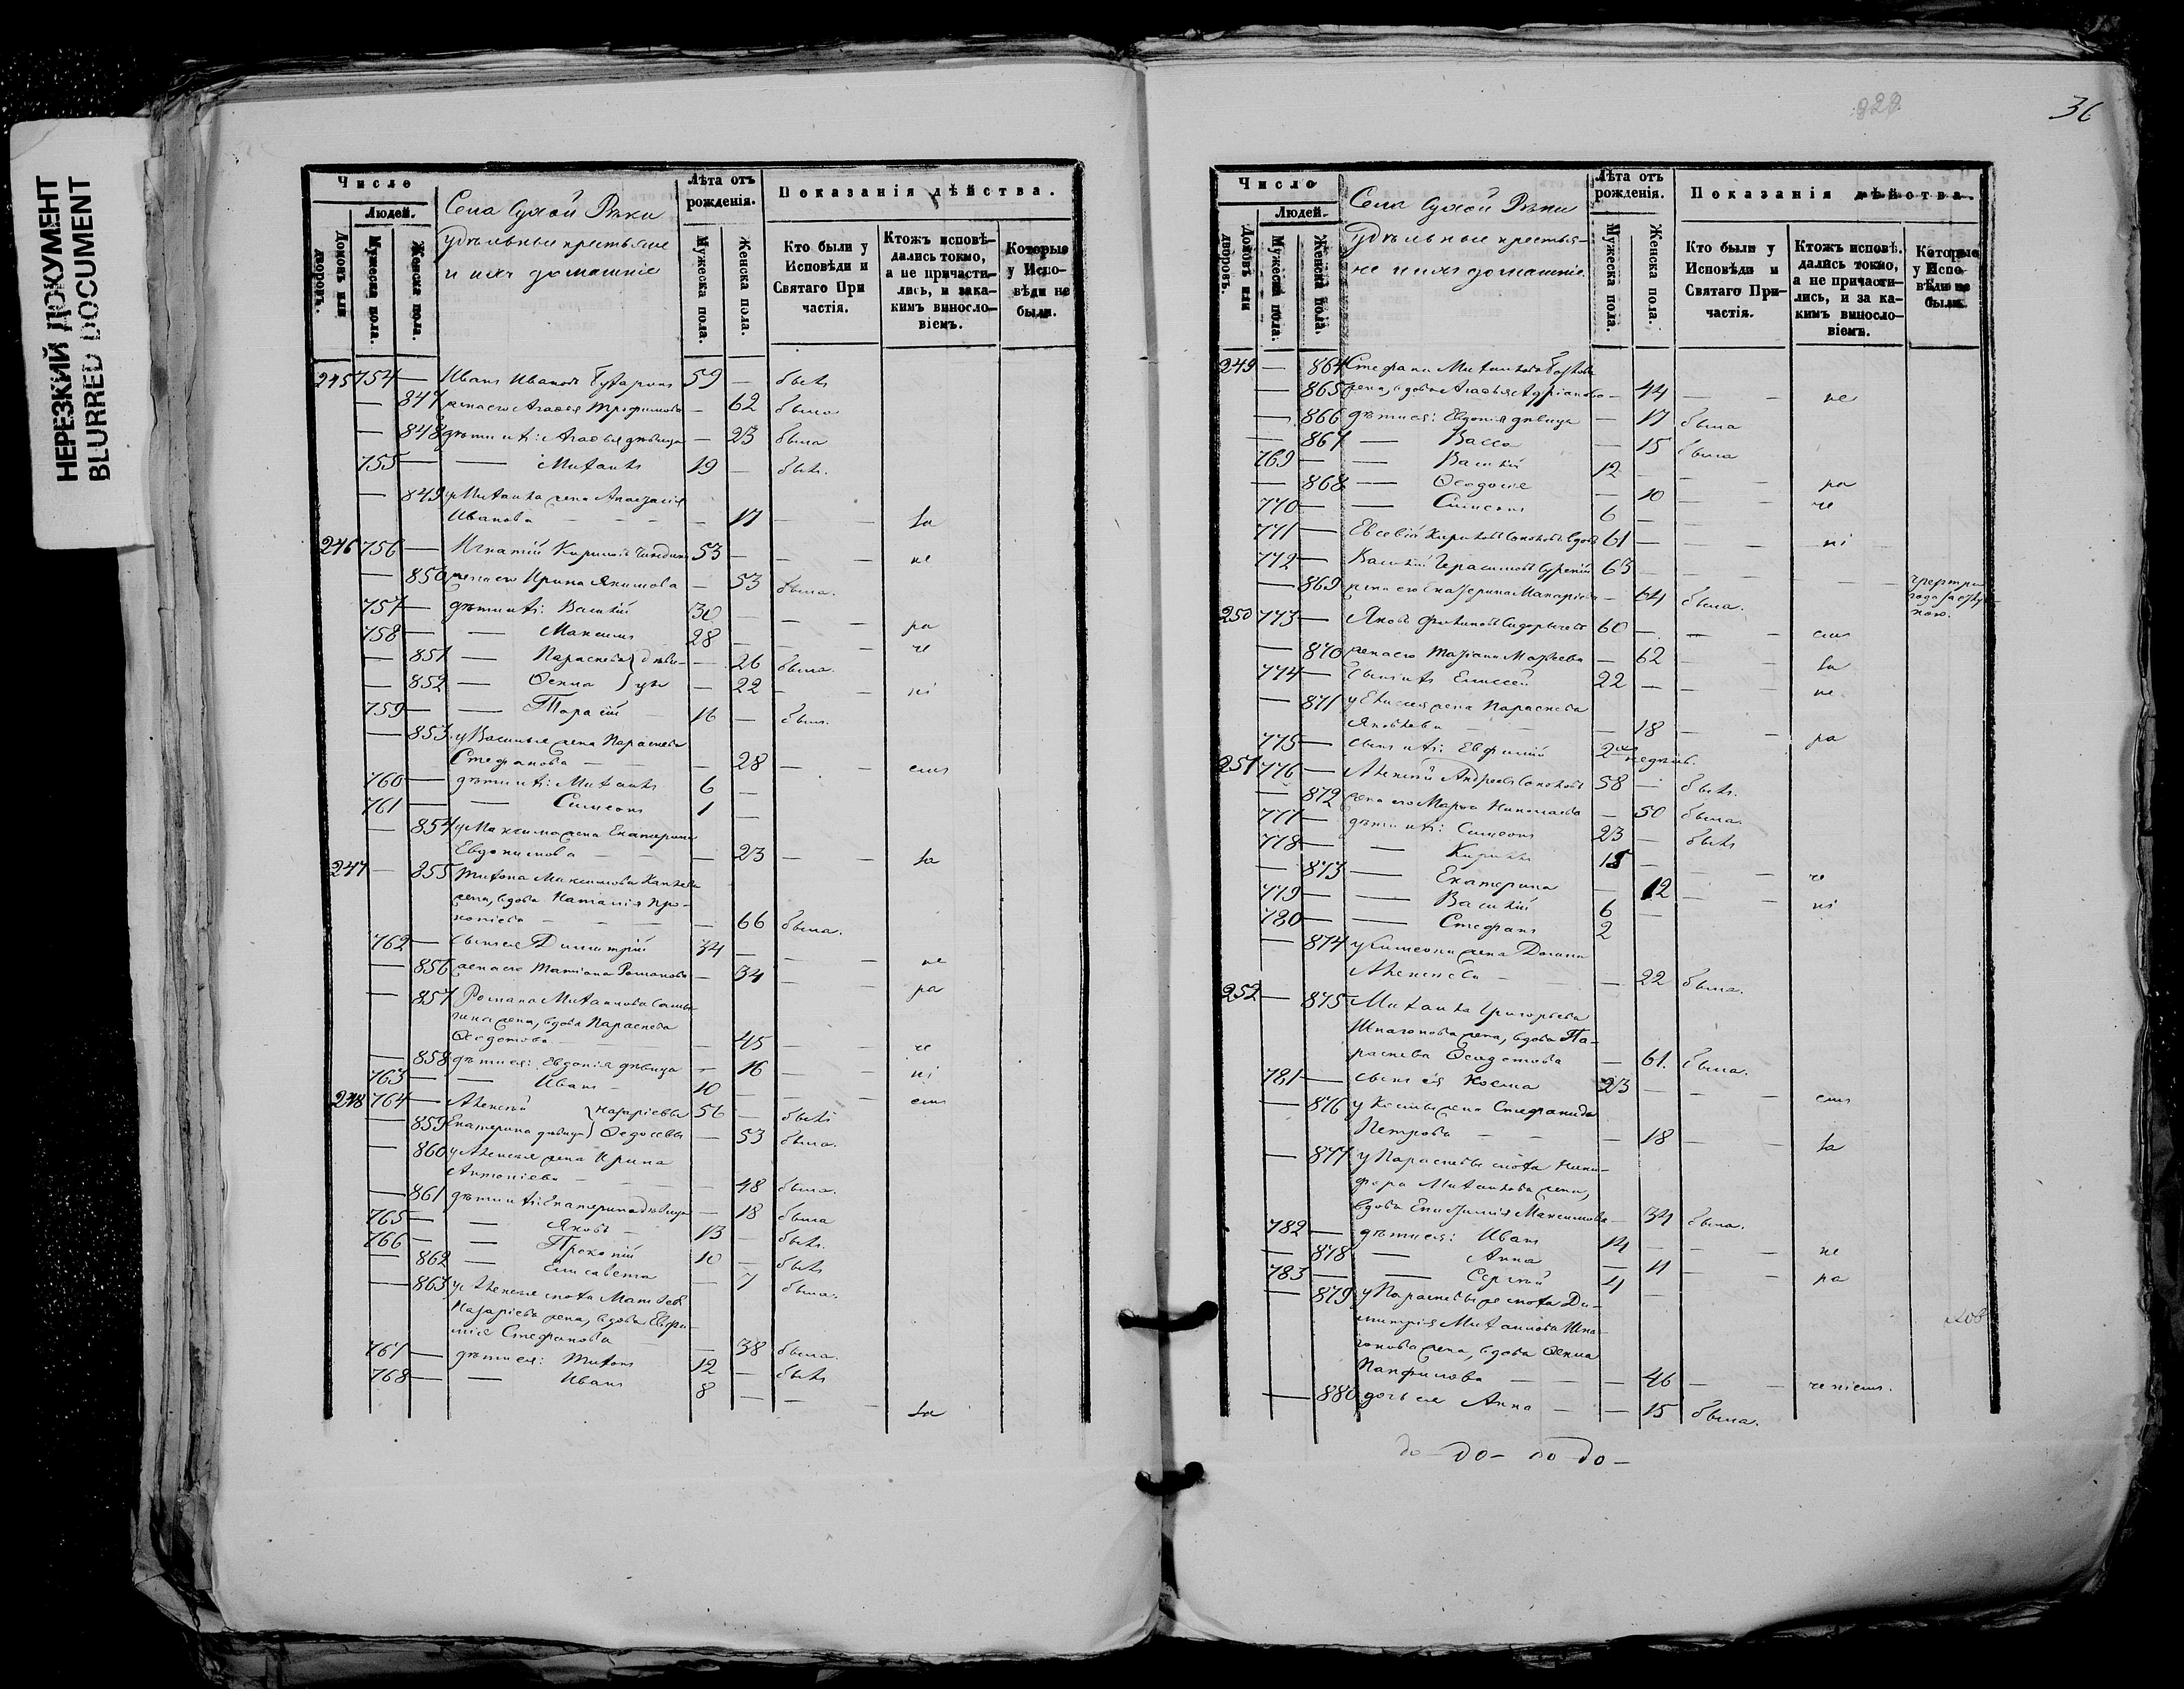 НЕРЕЗКИЙ ДОКУМЕНТ
BLURRED DOCUMENT
Число
Людей.
Домовъ или дворовъ.
Мужеска пола.
Женска пола.
Села Сухой Рѣки
удѣльные крестьяне
и ихъ домашніе
Лѣта отъ рожденія.
Мужеска пола.
Женска пола.
Показанія дѣйства.
Кто были у Исповѣди и Святаго При частія.
Ктожъ исповѣ-дались токмо, а не причасти-лись, и зака-кимъ винослo-віемъ.
Которые у Испо-вѣди не были.
245 754 — Иванъ Ивановъ 59 — былъ
— 847 жена его Агафья Трофимова — 62 была
— 848 дѣти ихъ: Агафья дѣвица — 23 была
755 — — Михаилъ 19 — былъ.
— 849 у Михаила жена Анастасія
Иванова — — — — 17 — — за
246 756 — Игнатій Кириловъ 53 — — — не
— 850 жена его Ирина Якимова — 53 была.
757 — дѣти ихъ: Василій 30 — — — ра
758 — — Максимъ 28 — — — че
— 851 — Параскева } дѣви- — 26 была.
— 852 — Ѳекла } цы — 22 — — ні
759 — — Тарасій 16 — былъ.
— 853 у Василья жена Параскева
Стефанова — — — 28 — — емъ
760 — дѣти ихъ: Михаилъ 6 —
761 — — Симеонъ 1 —
— 854 у Максима жена Екатерина
Евдокимова — — — 23 — — за
247 — 855 Тихона Максимова
жена, вдова Наталія Про-
копіева — — — — 66 была.
762 — сынъ ея Димитрій 34 — — — не
— 856 жена его Татіана Романова — 34 — — ра
— 857 Романа Михаилова
жена, вдова Параскева
Ѳедотова — — — 45 — — че
— 858 дѣти ея: Евдокія дѣвица — 16 — — ні
763 — — Иванъ — 10 — — — емъ
248 764 — Алексѣй } Назаріевы 56 — былъ
— 859 Екатерина дѣвица } Ѳедосѣевы — 53 была.
— 860 у Алексѣя жена Ирина
Антоніева — — — — 48 была.
— 861 дѣти ихъ: Екатерина дѣвица — 18 была
765 — — Яковъ — 13 — былъ.
766 — — Прокопій 10 — былъ
— 862 — Елисавета — 7 была.
— 863 у Алексѣя сноха Матѳея
Назаріева жена, вдова Евфи-
мія Стефанова — — 38 была.
767 — дѣти ея: Тихонъ 12 — былъ
768 — — Иванъ 8 — — — за
828
36
Число
Людей.
Домовъ или дворовъ.
Мужеска пола.
Женска пола.
Села Сухой Рѣки
удѣльные крестья-
не и ихъ домашніе.
Лѣта отъ рожденія.
Мужеска пола.
Женска пола.
Показанія дѣйства.
Кто были у Исповѣди и Святаго При-частія.
Ктожъ исповѣ. дались токмо, а не причасти-лись, и за ка-кимъ винослo-віемъ.
Которые у Испо-вѣди не были.
249 — 864 Стефана Михаилова
— 865 жена, вдова Агафья Адріанова — 44 — — не
— 866 дѣти ея: Евдокія дѣвица — 17 была
— 867 — Васса — 15 была
769 — — Василій 12 — — — ра
— 868 — Ѳеодосія — 10 — — че
770 — — Симеонъ 6 — —
771 — Евсевій Кириловъ вдовъ 61 — — — ні
772 — Василій Герасимовъ 63 — — —
— 869 жена его Екатерина Макаріева — 64 была.
250 773 — Яковъ 60 — — — емъ
— 870 жена его Матѳеева — 62 — — за
774 — сынъ ихъ Елисей 22 — — — не
— 871 у Елисея жена Параскева
Яковлева — — — 18 — — ра
775 — сынъ ихъ: Евфимій 2 недѣль.
251 776 — Алексѣй Андреевъ 58 — былъ.
— 872 жена его Марѳа Николаева — 50 была.
777 — дѣти ихъ: Симеонъ 23 — былъ
778 — — Кириллъ 15 — — — че
— 873 — Екатерина — 12 — — ні
779 — — Василій 6 —
780 — — Стефанъ 2
— 874 у Симеона жена Домна
Алексѣева — — — 22 была.
252 — 875 Михаила Григорьева
жена, вдова Па-
раскева Ѳедотова — 61. была.
781 — сынъ ея Косма 23 — — — емъ
— 876 у Космы жена Стефанида
Петрова — — — 18 — — за
— 877 у Параскевы сноха Ники-
фора Михаилова жена,
вдова Епистимія Максимова — 34 была.
782 — дѣти ея: Иванъ 14 — — — не
— 878 — Анна — 11 — — ра
783 — — Сергѣй 4 —
— 879 у Параскевы же сноха Ди-
митрія Михаилова
жена, вдова Ѳекла
Панфилова — — — 46 — — ченіемъ.
— 880 дочь ея Анна — — 15 была.